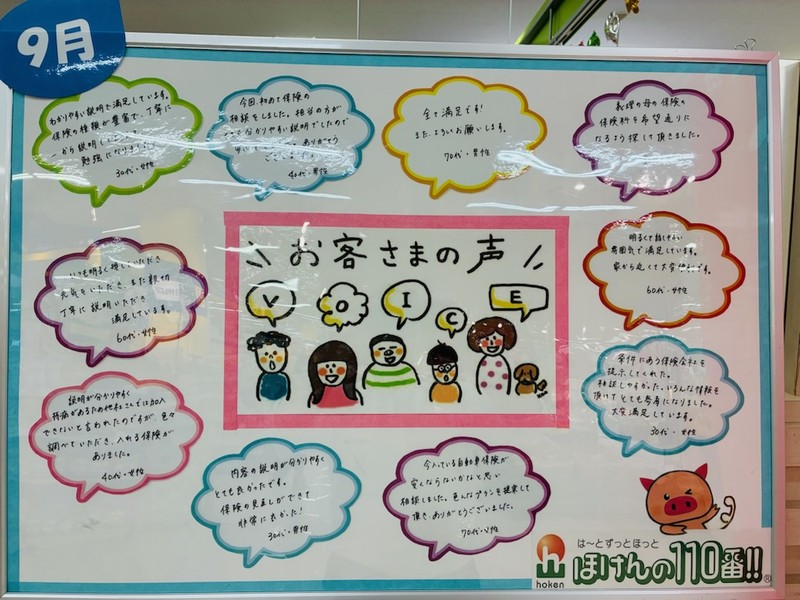 9月
わかりやすい説明で満足しています。
保険の種類が豊富で、丁寧に
から説明して
勉強になりました。
30代・女性
今回初めて保険の
相談をしました。担当の方が
分かりやすい説明でしたので
ありがとう
ございました。
40代・男性
全て満足です!
また、よろしくお願いします。
70代・男性
義理の母の保険の
保険料を希望通りに
なるよう探して頂きました。
いつも明るく接していただき
元気をいただき、また親切
丁寧に説明いただき
満足しています。
60代・女性
お客さまの声
VOICE
明るくて話しやすい
雰囲気で満足しています。
家から近くて大変便利です。
60代・女性
説明が分かりやすく
持病があるため他社さんでは加入
できないと言われたのですが、色々
調べていただき、入れる保険が
ありました。
40代・女性
条件にあう保険会社を
提示してくれた。
相談しやすかった。いろんな情報を
頂けてとても参考になりました。
大変満足しています。
30代・女性
内容の説明が分かりやすく
とても良かったです。
保険の見直しができて
非常に良かった!
30代・男性
今入っている自動車保険が
安くならないかなと思い
相談しました。色んなプランを提案して
頂き、ありがとうございました。
70代・女性
は〜とずっとほっと
h
hoken
ほけんの110番!!
®